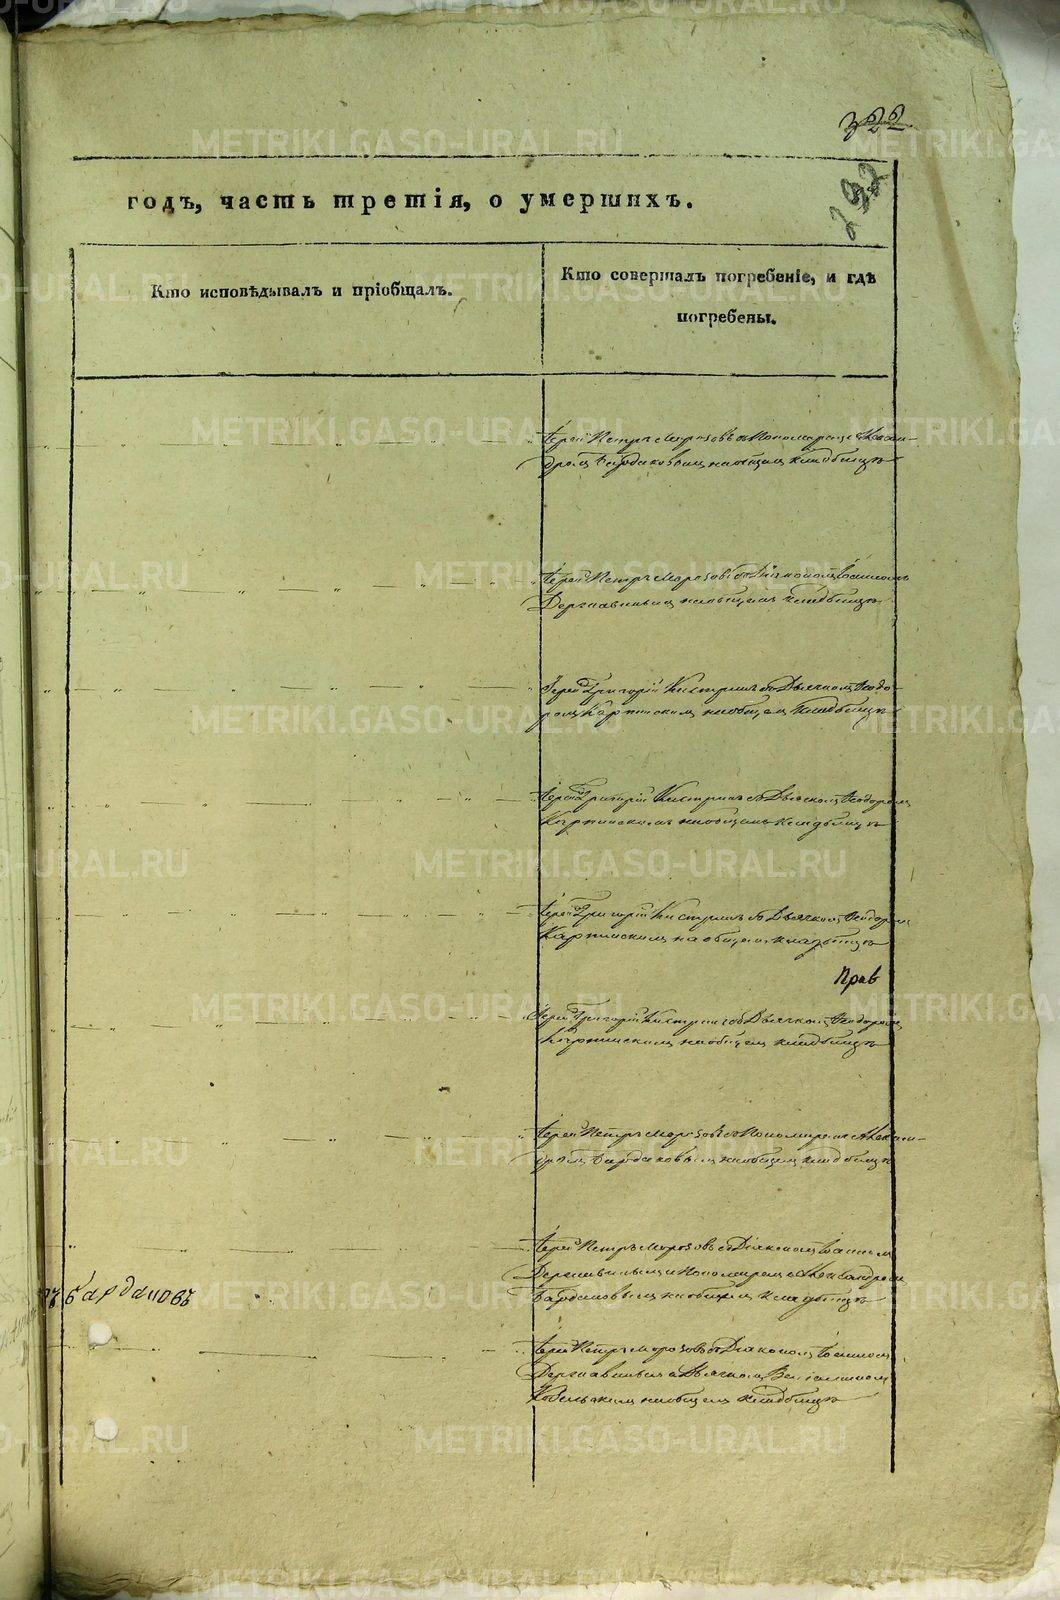 322
годъ, часть третія, о умершихъ.
Кто исповѣдывалъ и пріобщалъ.
Кто совершалъ погребеніе, и гдѣ
погребены.
Іерей Петръ Морозовъ съ Пономаремъ Алексан-
дромъ Бардаковымъ на общемъ кладбищѣ
Іерей Петръ Морозовъ съ Діакономъ Іоанномъ
Державинымъ на общемъ кладбищѣ
Іерей Григорій Кистринъ съ Дьячкомъ Ѳеодо-
ромъ Карпинскимъ на общемъ кладбищѣ
Іерей Григорій Кистринъ съ Дьячкомъ Ѳеодоромъ
Карпинскимъ на общемъ кладбищѣ
Іерей Григорій Кистринъ съ Дьячкомъ Ѳеодоромъ
Карпинскимъ на общемъ кладбищѣ
Прав
Іерей Григорій Кистринъ съ Дьячкомъ Ѳеодоромъ
Карпинскимъ на общемъ кладбищѣ
Іерей Петръ Морозовъ съ Пономаремъ Алексан-
дромъ Бардаковымъ на общемъ кладбищѣ
Іерей Петръ Морозовъ съ Діакономъ Іоанномъ
Державинымъ и Пономаремъ Александромъ
Бардаковымъ на общемъ кладбищѣ
Бардаковъ
Іерей Петръ Морозовъ съ Діакономъ Іоанномъ
Державинымъ и Дьячкомъ
на общемъ кладбищѣ
METRIKI.GASO-URAL.RU